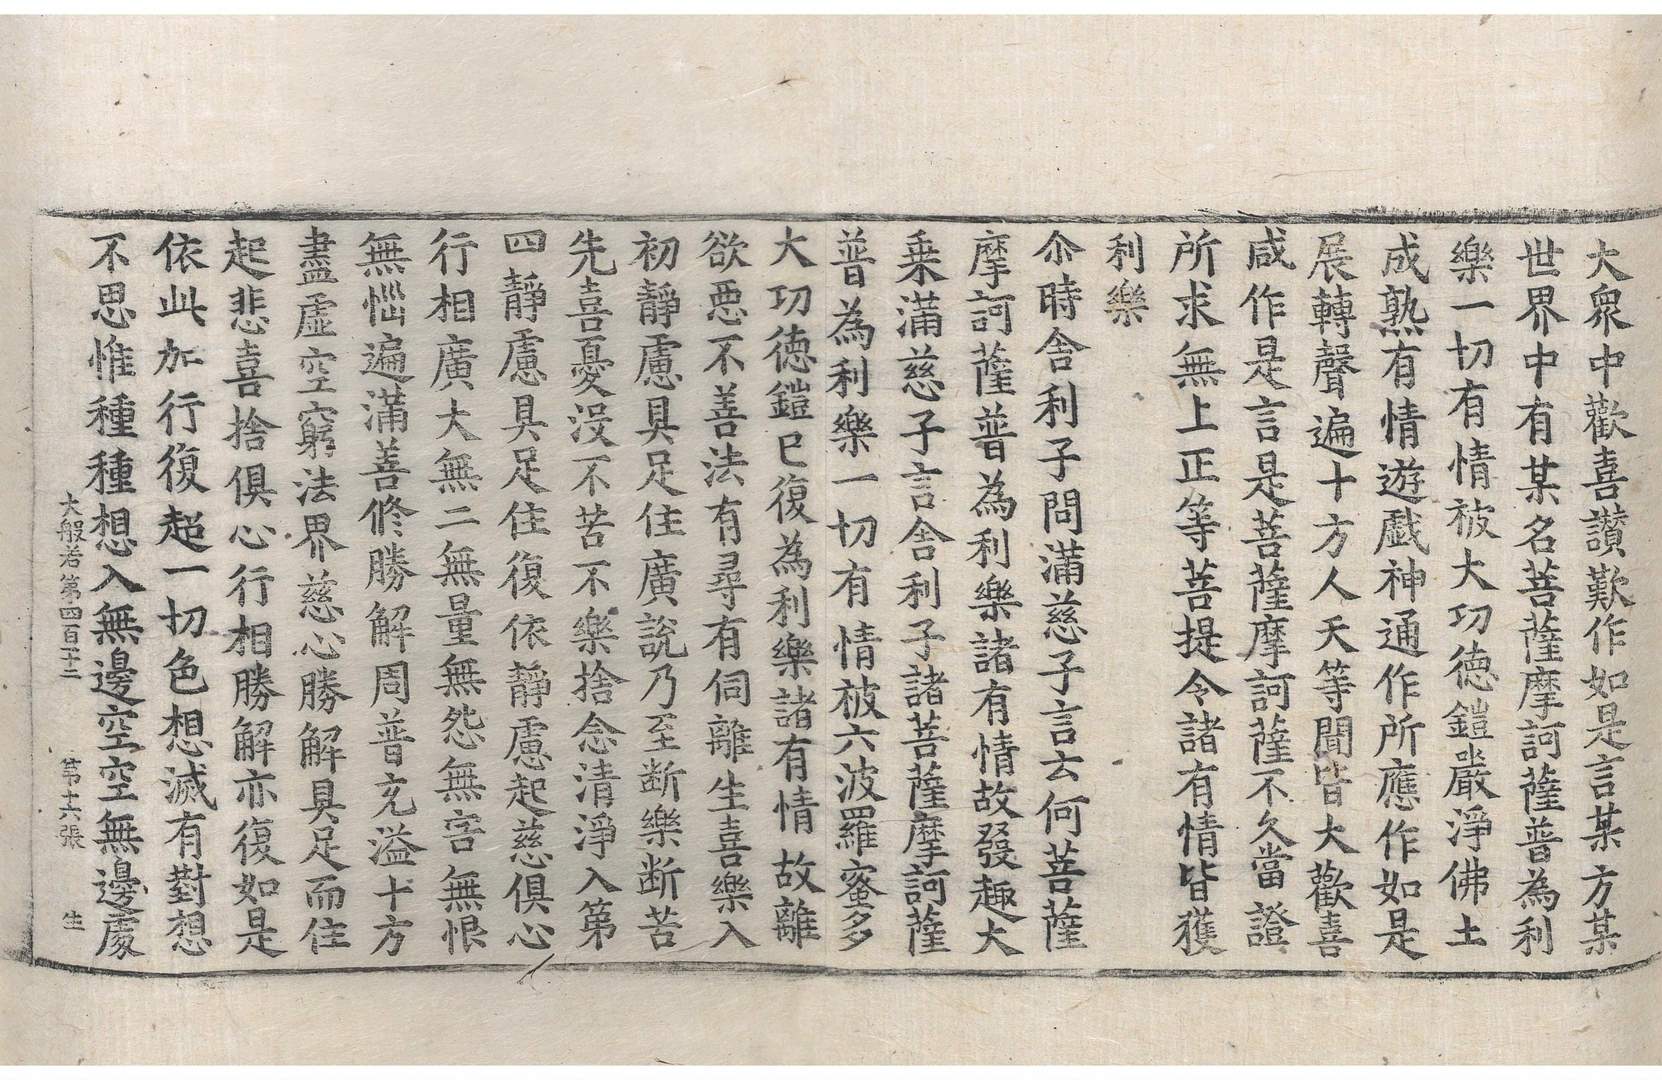 大衆中歡喜讚歎作如是言某方某
世界中有某名菩薩摩訶薩普為利
樂一切有情被大功德鎧嚴淨佛土
成熟有情遊戲神通作所應作如是
展轉聲遍十方人天等聞皆大歡喜
咸作是言是菩薩摩訶薩不久當證
所求無上正等菩提令諸有情皆獲
利樂
尒時舍利子問滿慈子言云何菩薩
摩訶薩普為利樂諸有情故發趣大
乗滿慈子言舍利子諸菩薩摩訶薩
普為利樂一切有情被六波羅蜜多
大功德鎧已復為利樂諸有情故離
欲惡不善法有尋有伺離生喜樂入
初靜慮具足住廣說乃至断樂断苦
先喜憂没不苦不樂捨念清淨入第
四靜慮具足住復依靜慮起慈俱心
行相廣大無二無量無怨無害無恨
無惱遍滿善修勝解周普充溢十方
盡虛空窮法界慈心勝解具足而住
起悲喜捨俱心行相勝解亦復如是
依此加行復超一切色想滅有對想
不思惟種種想入無邊空空無邊處
大般若第四百十二 第十六張 生